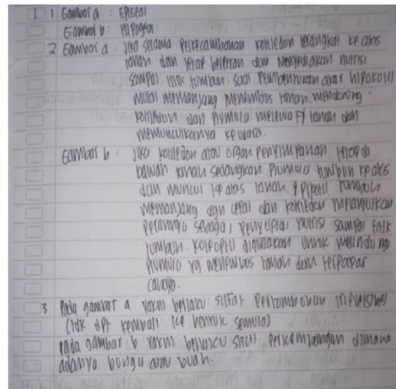 1 1 Gambar a : Epigeal
Gambar b : Hipogeal
2 Gambar a : Jika selama perkecambahan kotiledon terangkat ke atas
tanah dan tetap berperan dan menyediakan nutrisi
sampai titik tumbuh. Saat pembentukan akar hipokotil
mulai memanjang menembus tanah, mendorong
kotiledon dan plumula melewati tanah dan
memunculkannya ke udara.
Gambar b : Jika kotiledon atau organ penyimpanan berada
bawah tanah sedangkan plumula tumbuh ke atas
dan muncul ke atas tanah. Epikotil tumbuh
memanjang dgn cepat dan kotiledon melanjutkan
perannya sebagai penyuplai nutrisi sampai titik
tumbuh koleoptil digunakan untuk melindungi
plumula yg menembus tanah dan terpapar
cahaya.
3 Pada gambar a yakni berlaku sifat pertumbuhan irreversibel
(tdk dpt kembali ke bentuk semula)
pada gambar b yakni berlaku sifat perkembangan dimana
adanya bunga atau buah.